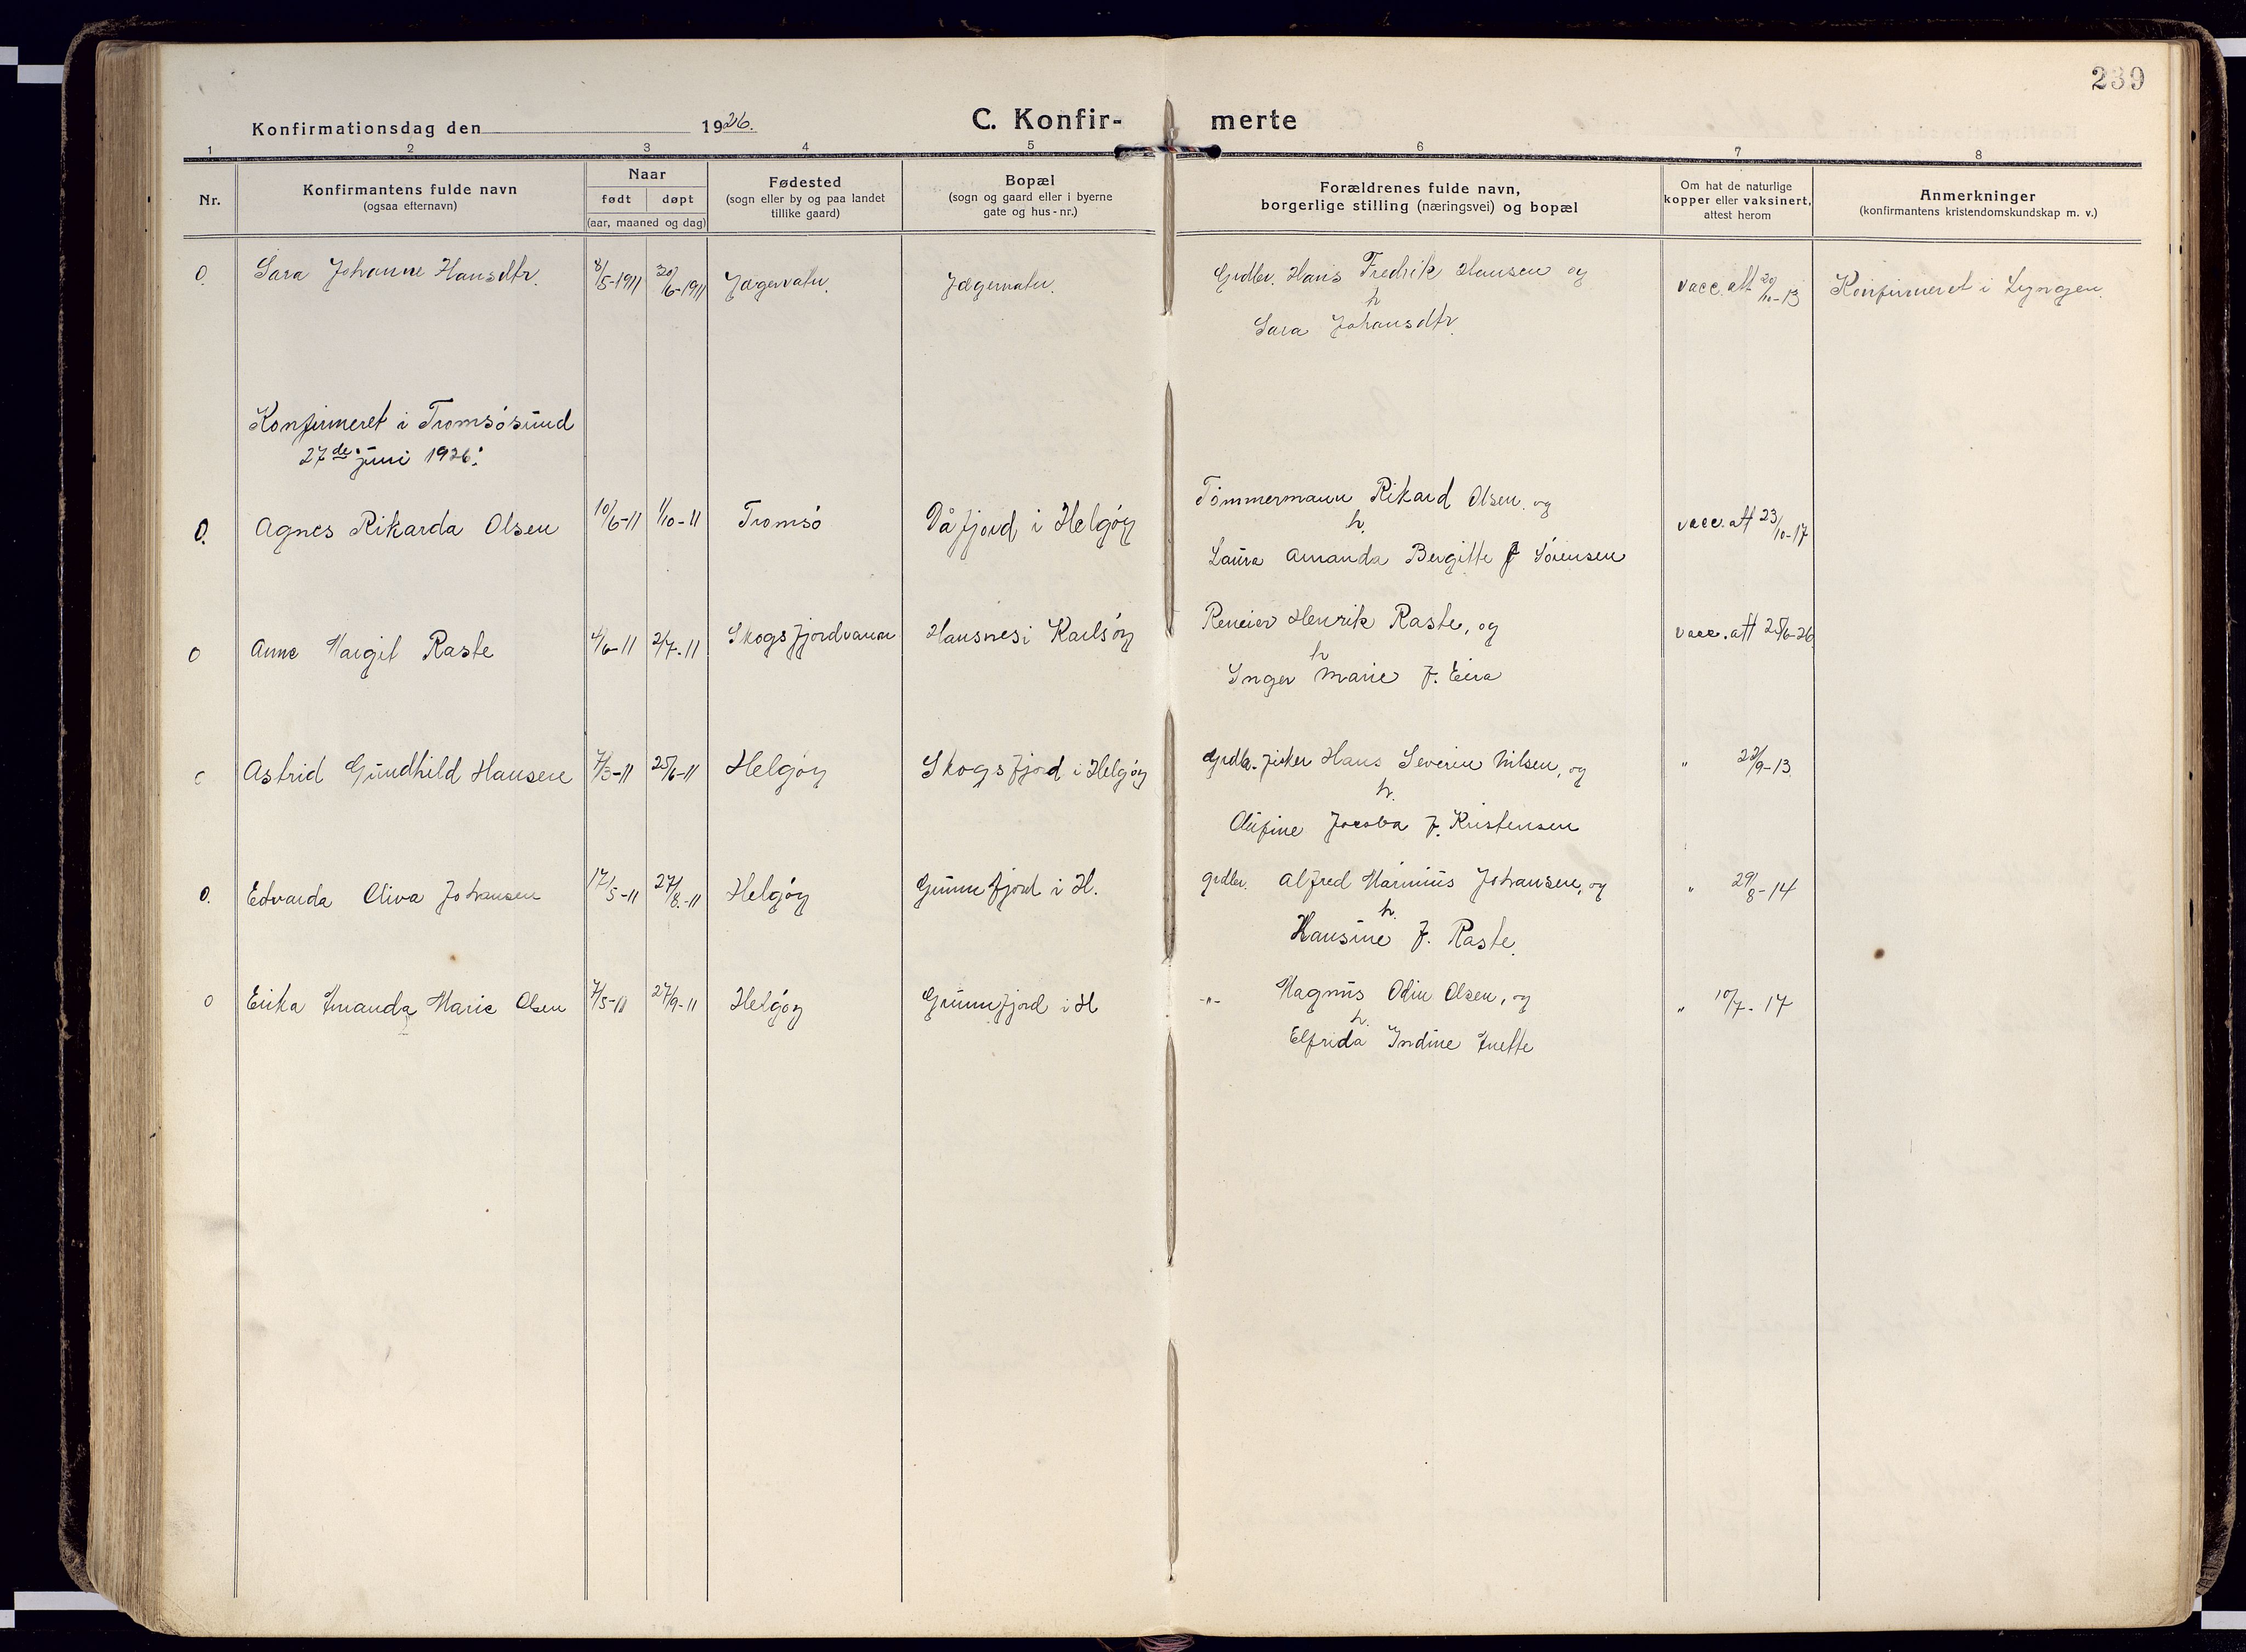 239
Konfirmationsdag den 1926.
C. Konfir- merte
1 2 3 4 5 6 7 8
Nr.
Konfirmantens fulde navn
(ogsaa efternavn)
Naar
født døpt
(aar, maaned og dag)
Fødested
(sogn eller by og paa landet
tillike gaard)
Bopæl
(sogn og gaard eller i byerne
gate og hus-nr.)
Forældrenes fulde navn,
borgerlige stilling (næringsvei) og bopæl
Om hat de naturlige
kopper eller vaksinert,
attest herom
Anmerkninger
(konfirmantens kristendomskundskap m. v.)
0. Sara Johanne Hansdtr. 8/5-1911 20/6-1911 Jægervatn. Jægervatn. Grdbr. Hans Fredrik Hansen og vacc. att 20/10-13 Konfirmeret i Lyngen.
h
Sara Johansdtr.
Konfirmeret i Tromsøsund
27de juni 1926:
0. Agnes Rikarda Olsen 10/6-11 1/10-11 Tromsø Dåfjord i Helgøy Tømmermann Rikard Olsen og vacc. att 23/10-17
h.
Laura Amanda Bergitte J Sørensen
0 Anne Margit Raste 4/6-11 2/7-11 Skogsfjordvann Hansnes i Karlsøy Reneier Henrik Raste, og vacc. att 25/6-26
h
Inger Marie f. Eira
0 Astrid Gundhild Hansen 7/3-11 25/6-11 Helgøy Skogsfjord i Helgøy Grdbr. fisker Hans Severin Nilsen, og " 22/9-13.
h.
Olufine Jocoba f. Kristensen
0. Edvarda Oliva Johansen 17/5-11 27/8-11 Helgøy Grunnfjord i H. grdbr. Alfred Marinius Johansen, og " 29/8-14
h.
Hansine f. Raste.
0 Erika Amanda Marie Olsen 7/5-11 27/9-11 Helgøy Grunnfjord i H -"- Magnus Odin Olsen, og " 10/7-17
h.
Elfrida Indine Anette